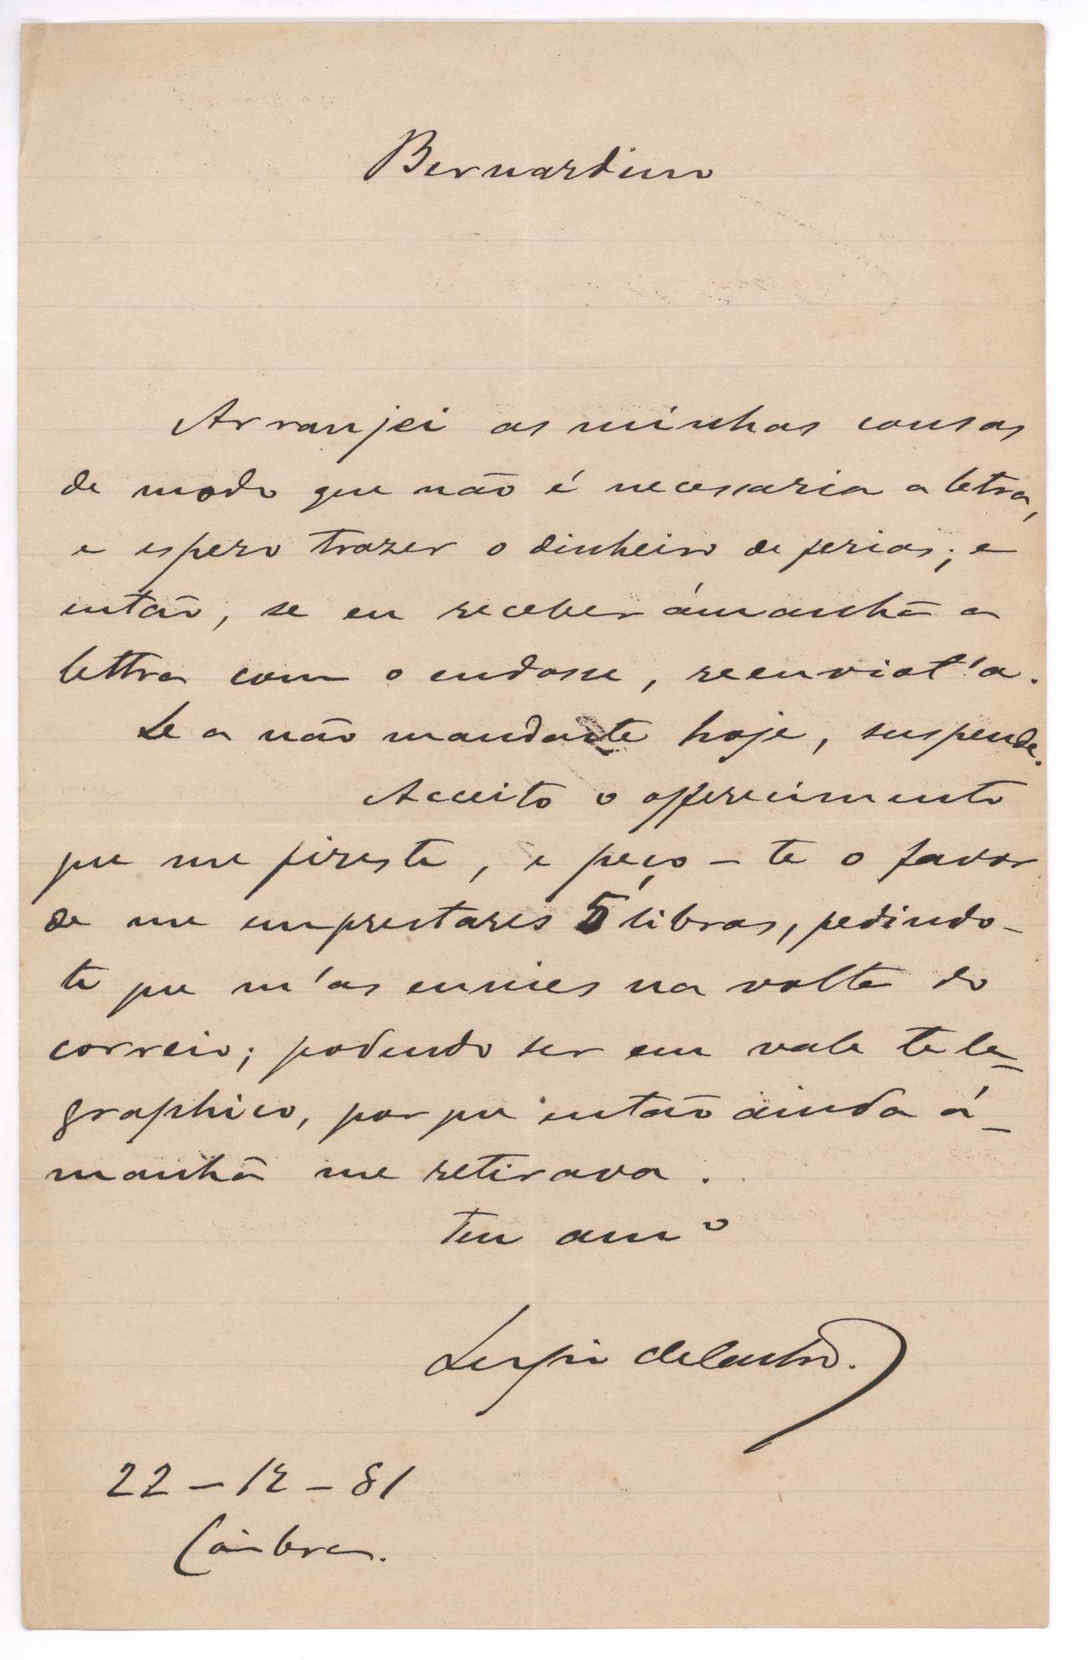 Bernardino
Arranjei as minhas cousas
de modo que não é necessaria a letra,
e espero trazer o dinheiro de ferias; e
então, se eu receber ámanhã a
lettra com o endosse, reenviat'a.
Se a não mandaste hoje, suspende.
Acceito o offerecimento
que me fizeste, e peço-te o favor
de me emprestares 5 libras, pedindo-
te que m'as envies na volta do
correio; podendo ser em vale tele-
graphico, por que então ainda á-
manhã me retirava.
Teu amº
de Castro.
22-12-81
Coimbra.